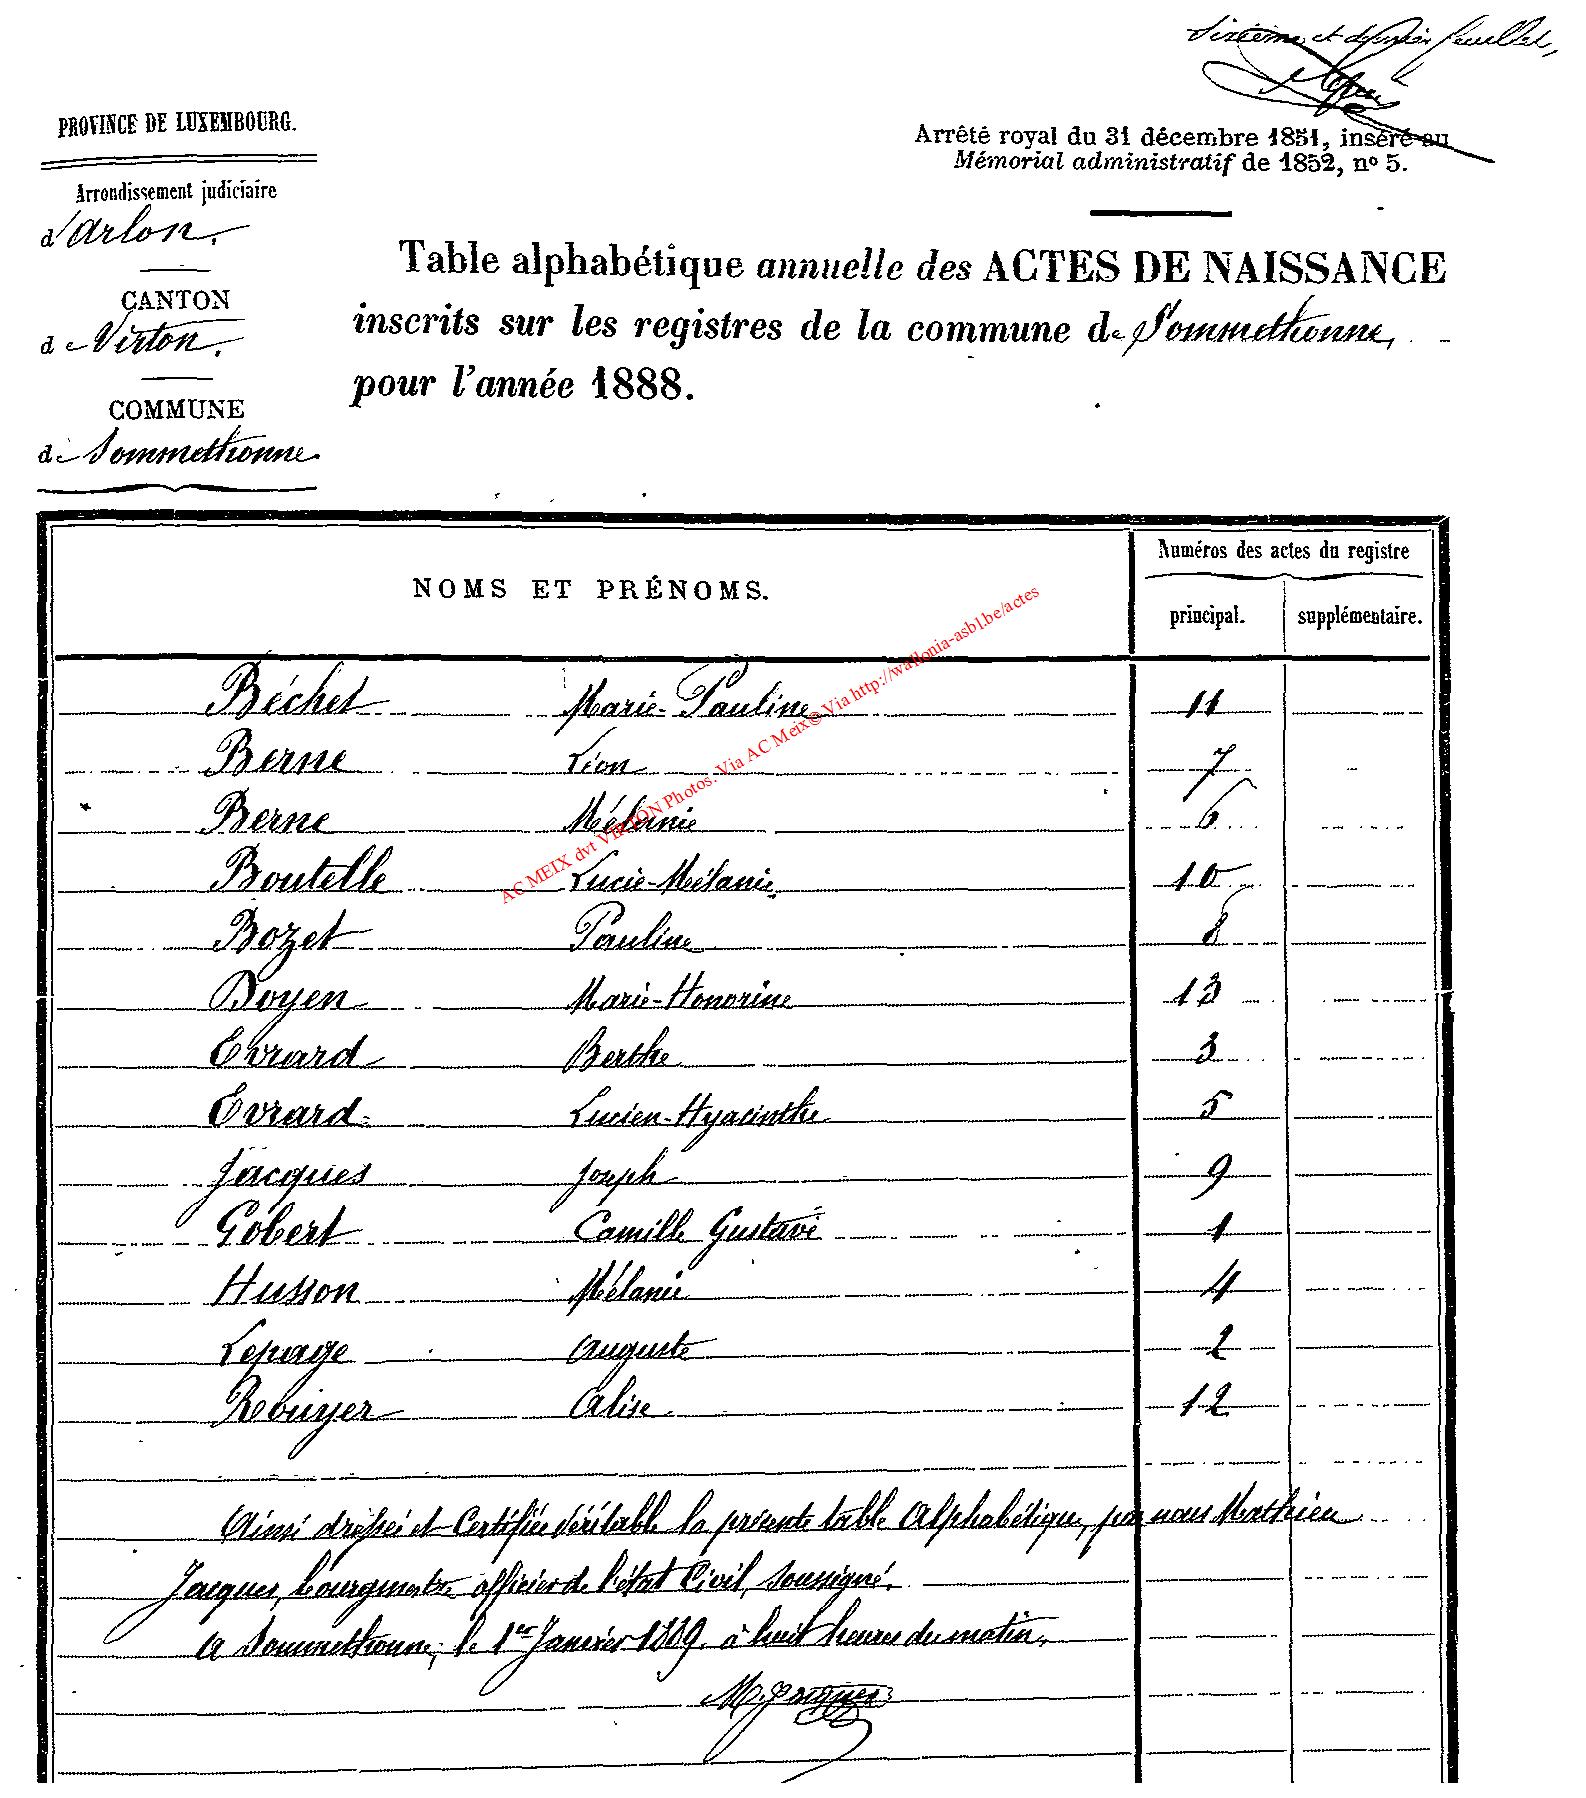 Sixième et dernier feuillet,
PROVINCE DE LUXEMBOURG.
Arrêté royal du 31 décembre 1851, inséré au
Mémorial administratif de 1852, nº 5.
Arrondissement judiciaire
d'Arlon.
CANTON
de Virton.
COMMUNE
de Sommethonne
Table alphabétique annuelle des ACTES DE NAISSANCE
inscrits sur les registres de la commune de Sommethonne,
pour l'année 1888.
NOMS ET PRÉNOMS.
Numéros des actes du registre
principal. supplémentaire.
Béchet Marie-Pauline 11
Berne Léon 7
Berne Mélanie 6
Boutelle Lucie-Mélanie 10
Bozet Pauline 8
Doyen Marie-Honorine 13
Evrard Berthe 3
Evrard Lucien-Hyacinthe 5
Jacques Joseph 9
Gobert Camille Gustave 1
Husson Mélanie 4
Lepage Auguste 2
Rouyer Alise 12
Ainsi dressée et Certifiée véritable la présente table Alphabétique, par nous Mathieu
Jacques, bourgmestre officier de l'état Civil, soussigné.
A Sommethonne, le 1er Janvier 1889. à huit heures du matin.
M. Jacques
AC MEIX dvt VIRTON Photos. Via AC Meix© Via http://wallonia-asbl.be/actes